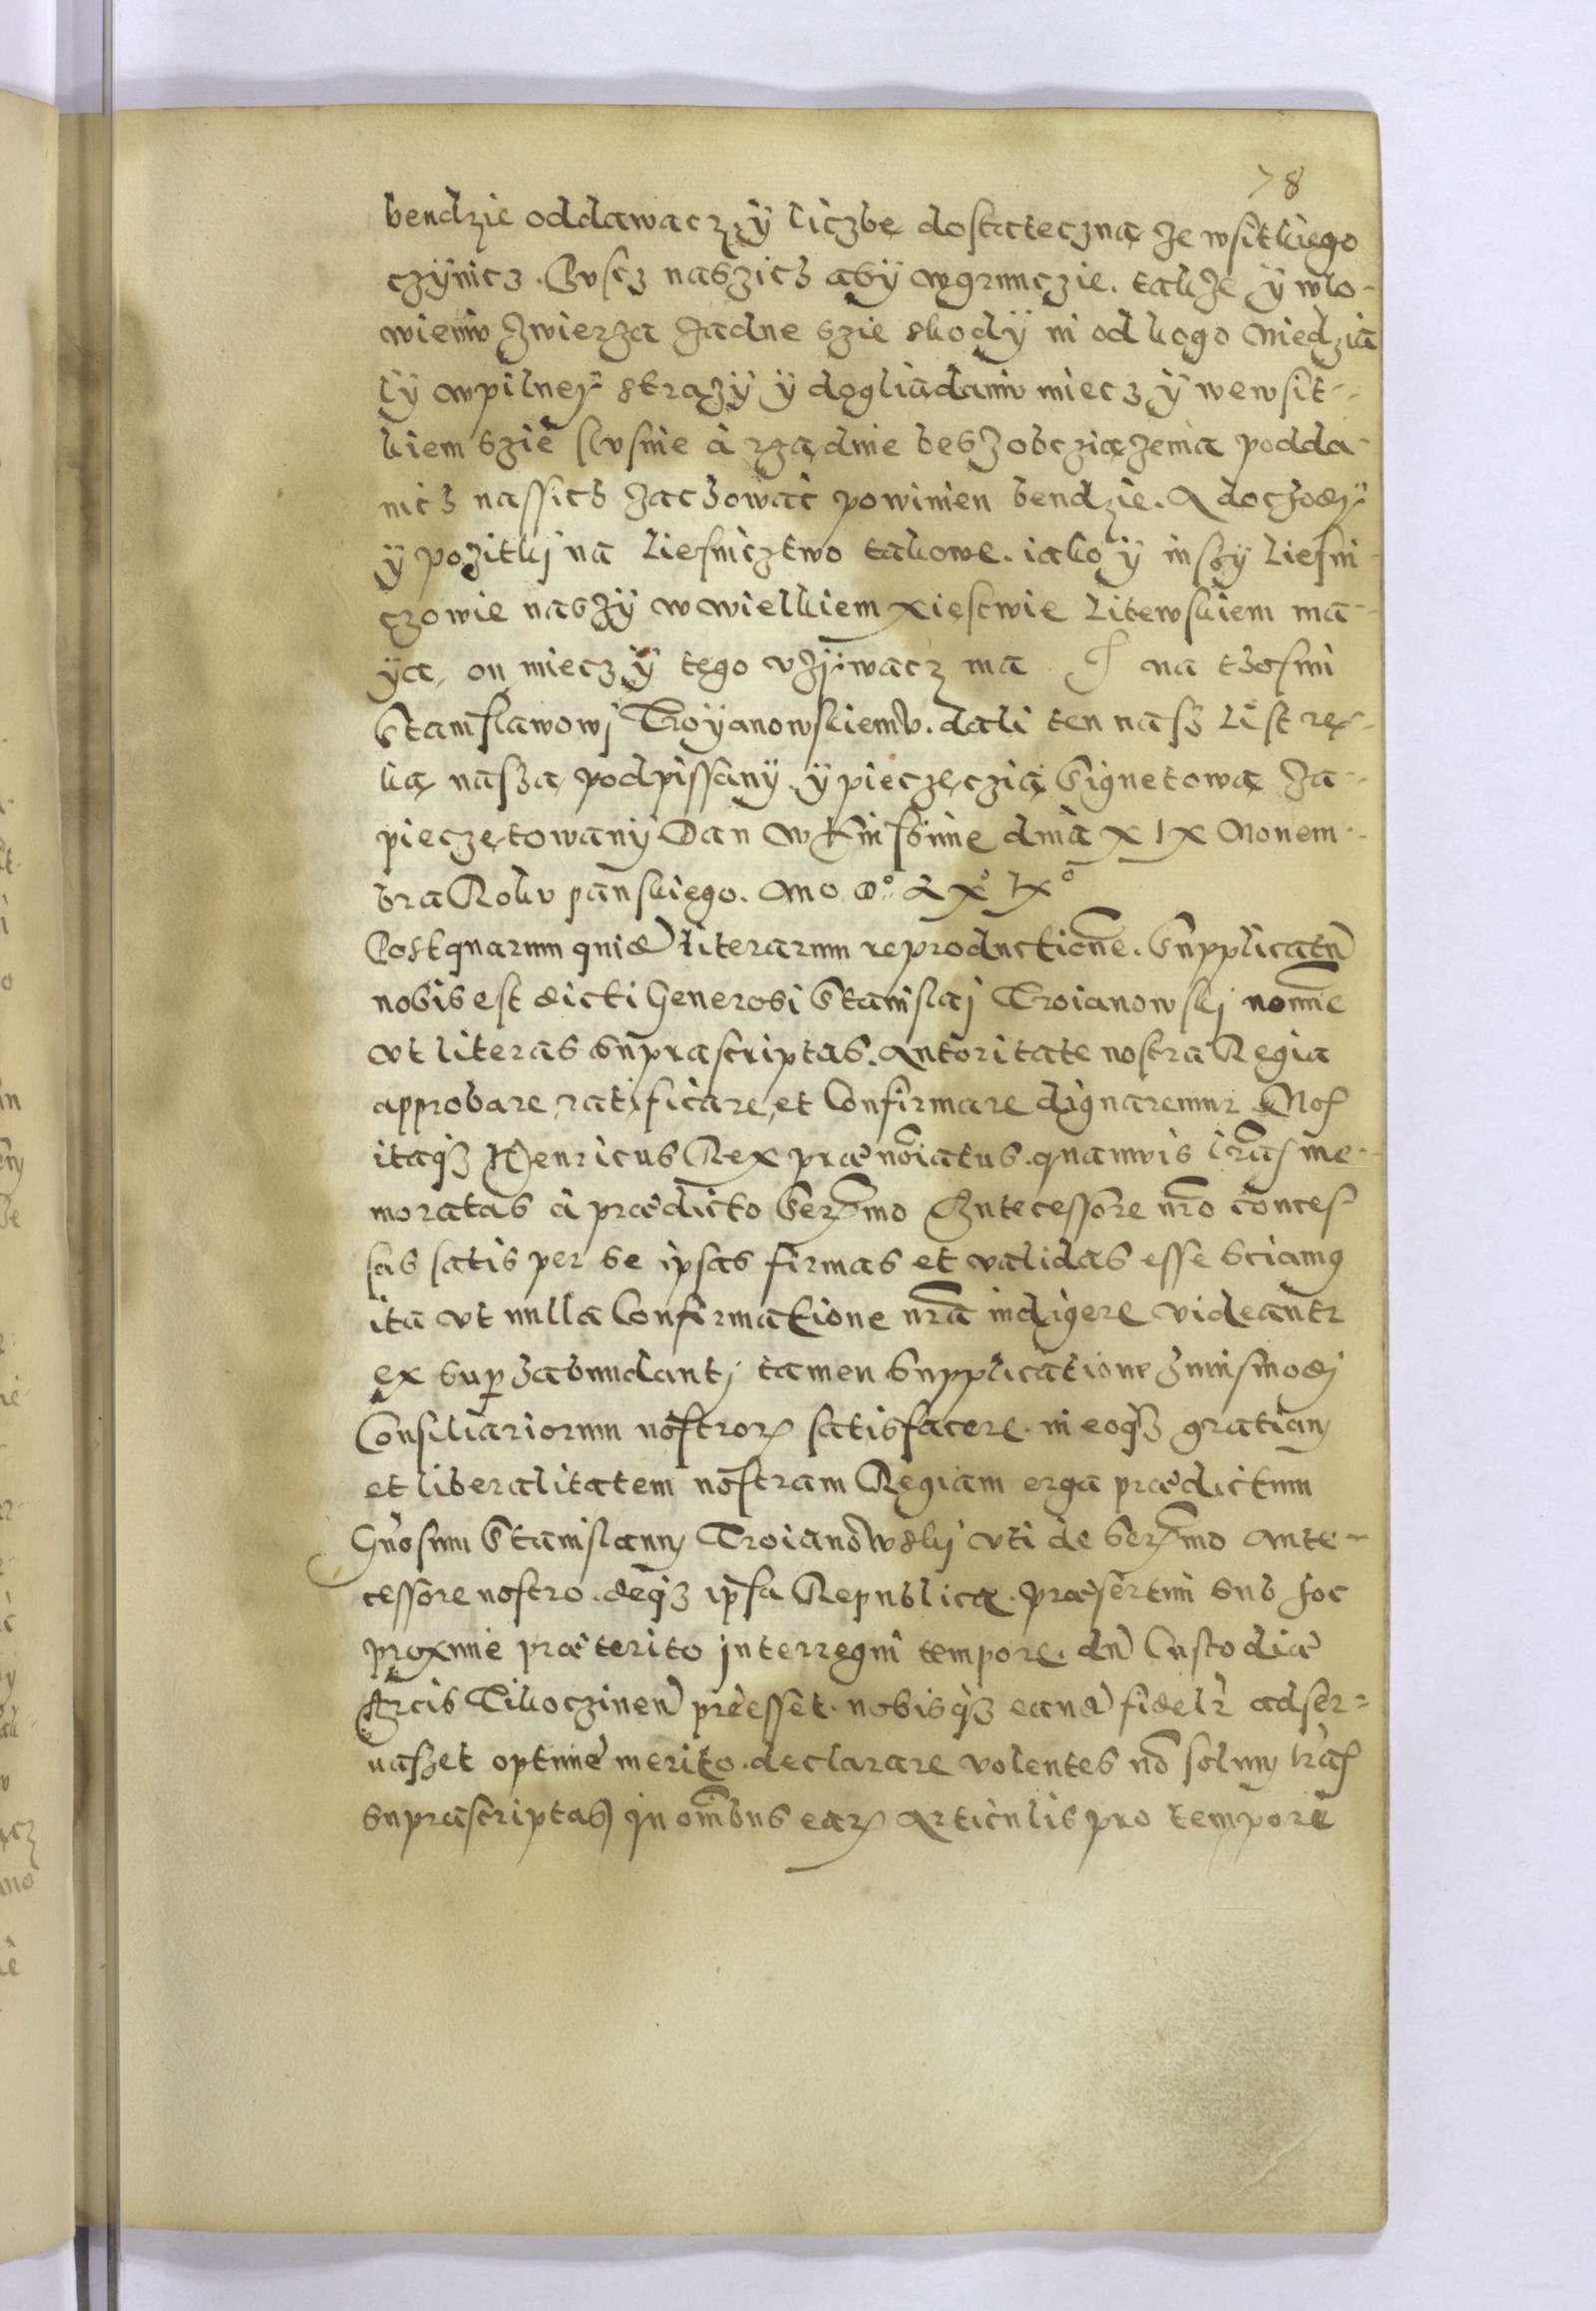 78
bendzie oddawacz, ÿ liczbę dostateczną ze wsitkiego
czÿnicz. Pvscz naszich abÿ w grunczie. takze ÿ wlo-
wieniv zwierza zadne szie skodÿ ni od kogo niedzia
lÿ w pilneÿ strazÿ ÿ dogliądaniv miecz ÿ wewsit-
kiem szie slvsnie à rządnie bes zobcziązenia podda-
nich nassich zachować powinien bendzie. A dochodÿ
ÿ pozitkj na liesnicztwo takowe. iako ÿ inszÿ liesni-
czowie naszÿ w wielkiem xięstwie Litewskiem ma-
ÿą, on miecz ÿ tego vzÿwacz ma na tho smi
Stanislawowj Troÿanowskiemv. dali ten nasz list rę-
ką naszą podpissanÿ ÿ pieczęczią Signetową za-
pieczętowanÿ Dan w Knissinie dnia XIX Nouem-
bra Rokv panskiego. Mo Do LXo IXo
Post quarum quid literarum reproductione. Supplicatu
nobis est dicti Generosi Stanislaj Troianowskj nomine
vt literas suprascriptas. autoritate nostra Regia
approbare, ratificare, et Confirmare dignaremur. Nos
itaqz Henricus Rex prænoiatus. quamvis lras me-
moratas à prædicto Sermo Antecessore nro conces-
sas satis per se ipsas firmas et validas esse sciamus
ita vt nulla Confirmatione nra indigere videantr
ex superhabundantj tamen supplicatione huiusmodj
Consiliariorum nostror satisfacere. in eoqz gratiam
et liberalitatem nostram Regiam erga prædictum
Gnosum Stanislaum Troianowskij vti de Sermo Ante-
cessore nostro. deqz ipsa Republica. præsertim sub hoc
proxime præterito interregni tempore. du Custodiæ
Arcis Tikoczinen præesset. nobisqz eand fidelr adser-
uaszet optime merito. declarare volentes no solum lras
suprascriptas in omibus ear Articulis pro tempore